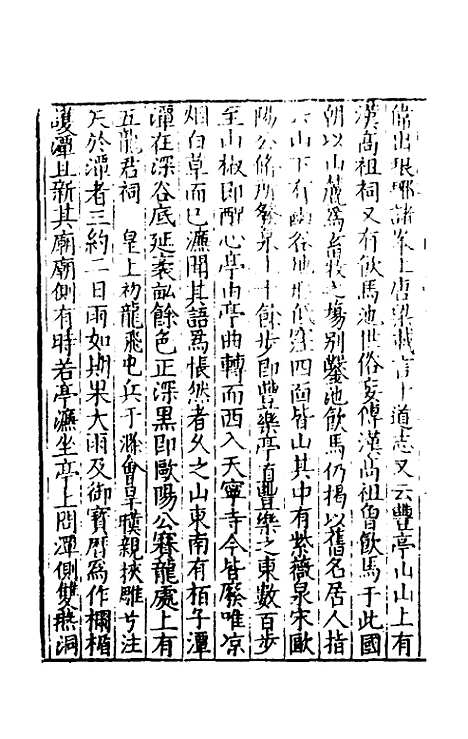 備出琅琊諸峯上唐梁載言十道志又云豐亭山山上有
漢高祖祠又有飲馬池世俗妄傳漢高祖曾飲馬于此國
朝以山麓爲畜牧之塲別鑿池飲馬仍揭以舊名居人指
山下有幽谷地形低窪四面皆山其中有紫薇泉宋歐
陽公脩所發泉上十餘步即豐樂亭直豐樂之東數百步
至山椒即醒心亭由亭曲轉而西入天寧寺今皆廢唯凉
烟白草而已濂聞其語爲悵然者久之山東南有栢子潭
潭在深谷底延袤畝餘色正深黑即歐陽公賽龍處上有
五龍君祠 皇上初龍飛屯兵于滁會旱暵親挾雕弓注
矢於潭者三約二日雨如期果大雨及御寶曆爲作欄楯
護潭且新其廟廟側有時若亭濂坐亭上問潭側雙燕洞